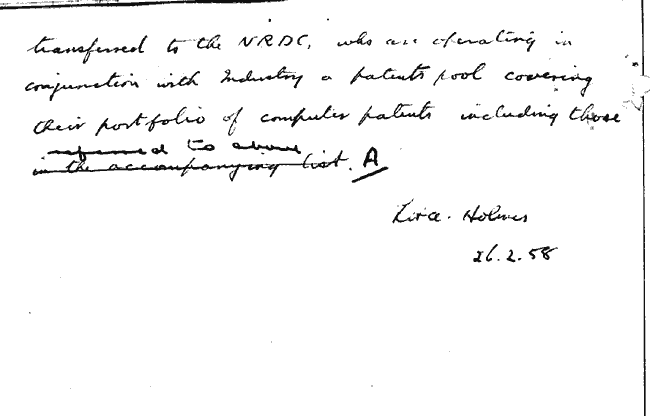 transferred to the NRDC, who are operating in
conjunction with Industry a patents pool covering
their portfolio of computer patents including those
referred to above
in the accompanying list. A
Holmes
26.2.58